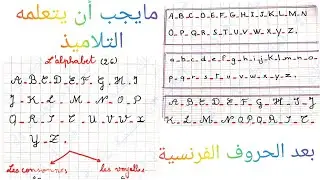 مايجب أن يتعلمه
التلاميذ
L'alphabet (26)
A_B_C_D_E_F_G_H_I
J_K_L_M_N_O_P
Q_R_S_T_U_V_W_X
Y_Z.
Les consonnes
les voyelles
A_B_C_D_E_F_G_H_I_J_K_L_M_N
O_P_Q_R_S_T_U_V_W_X_Y_Z.
a_b_c_d_e_f_g_h_i_j_k_l_m_n_o
p_q_r_s_t_u_v_w_x_y_z.
A_B_C_D_E_F_G_H_I_J
K_L_M_N_O_P_Q_R_S_T_U_V_W_X_Y_Z.
بعد الحروف الفرنسية